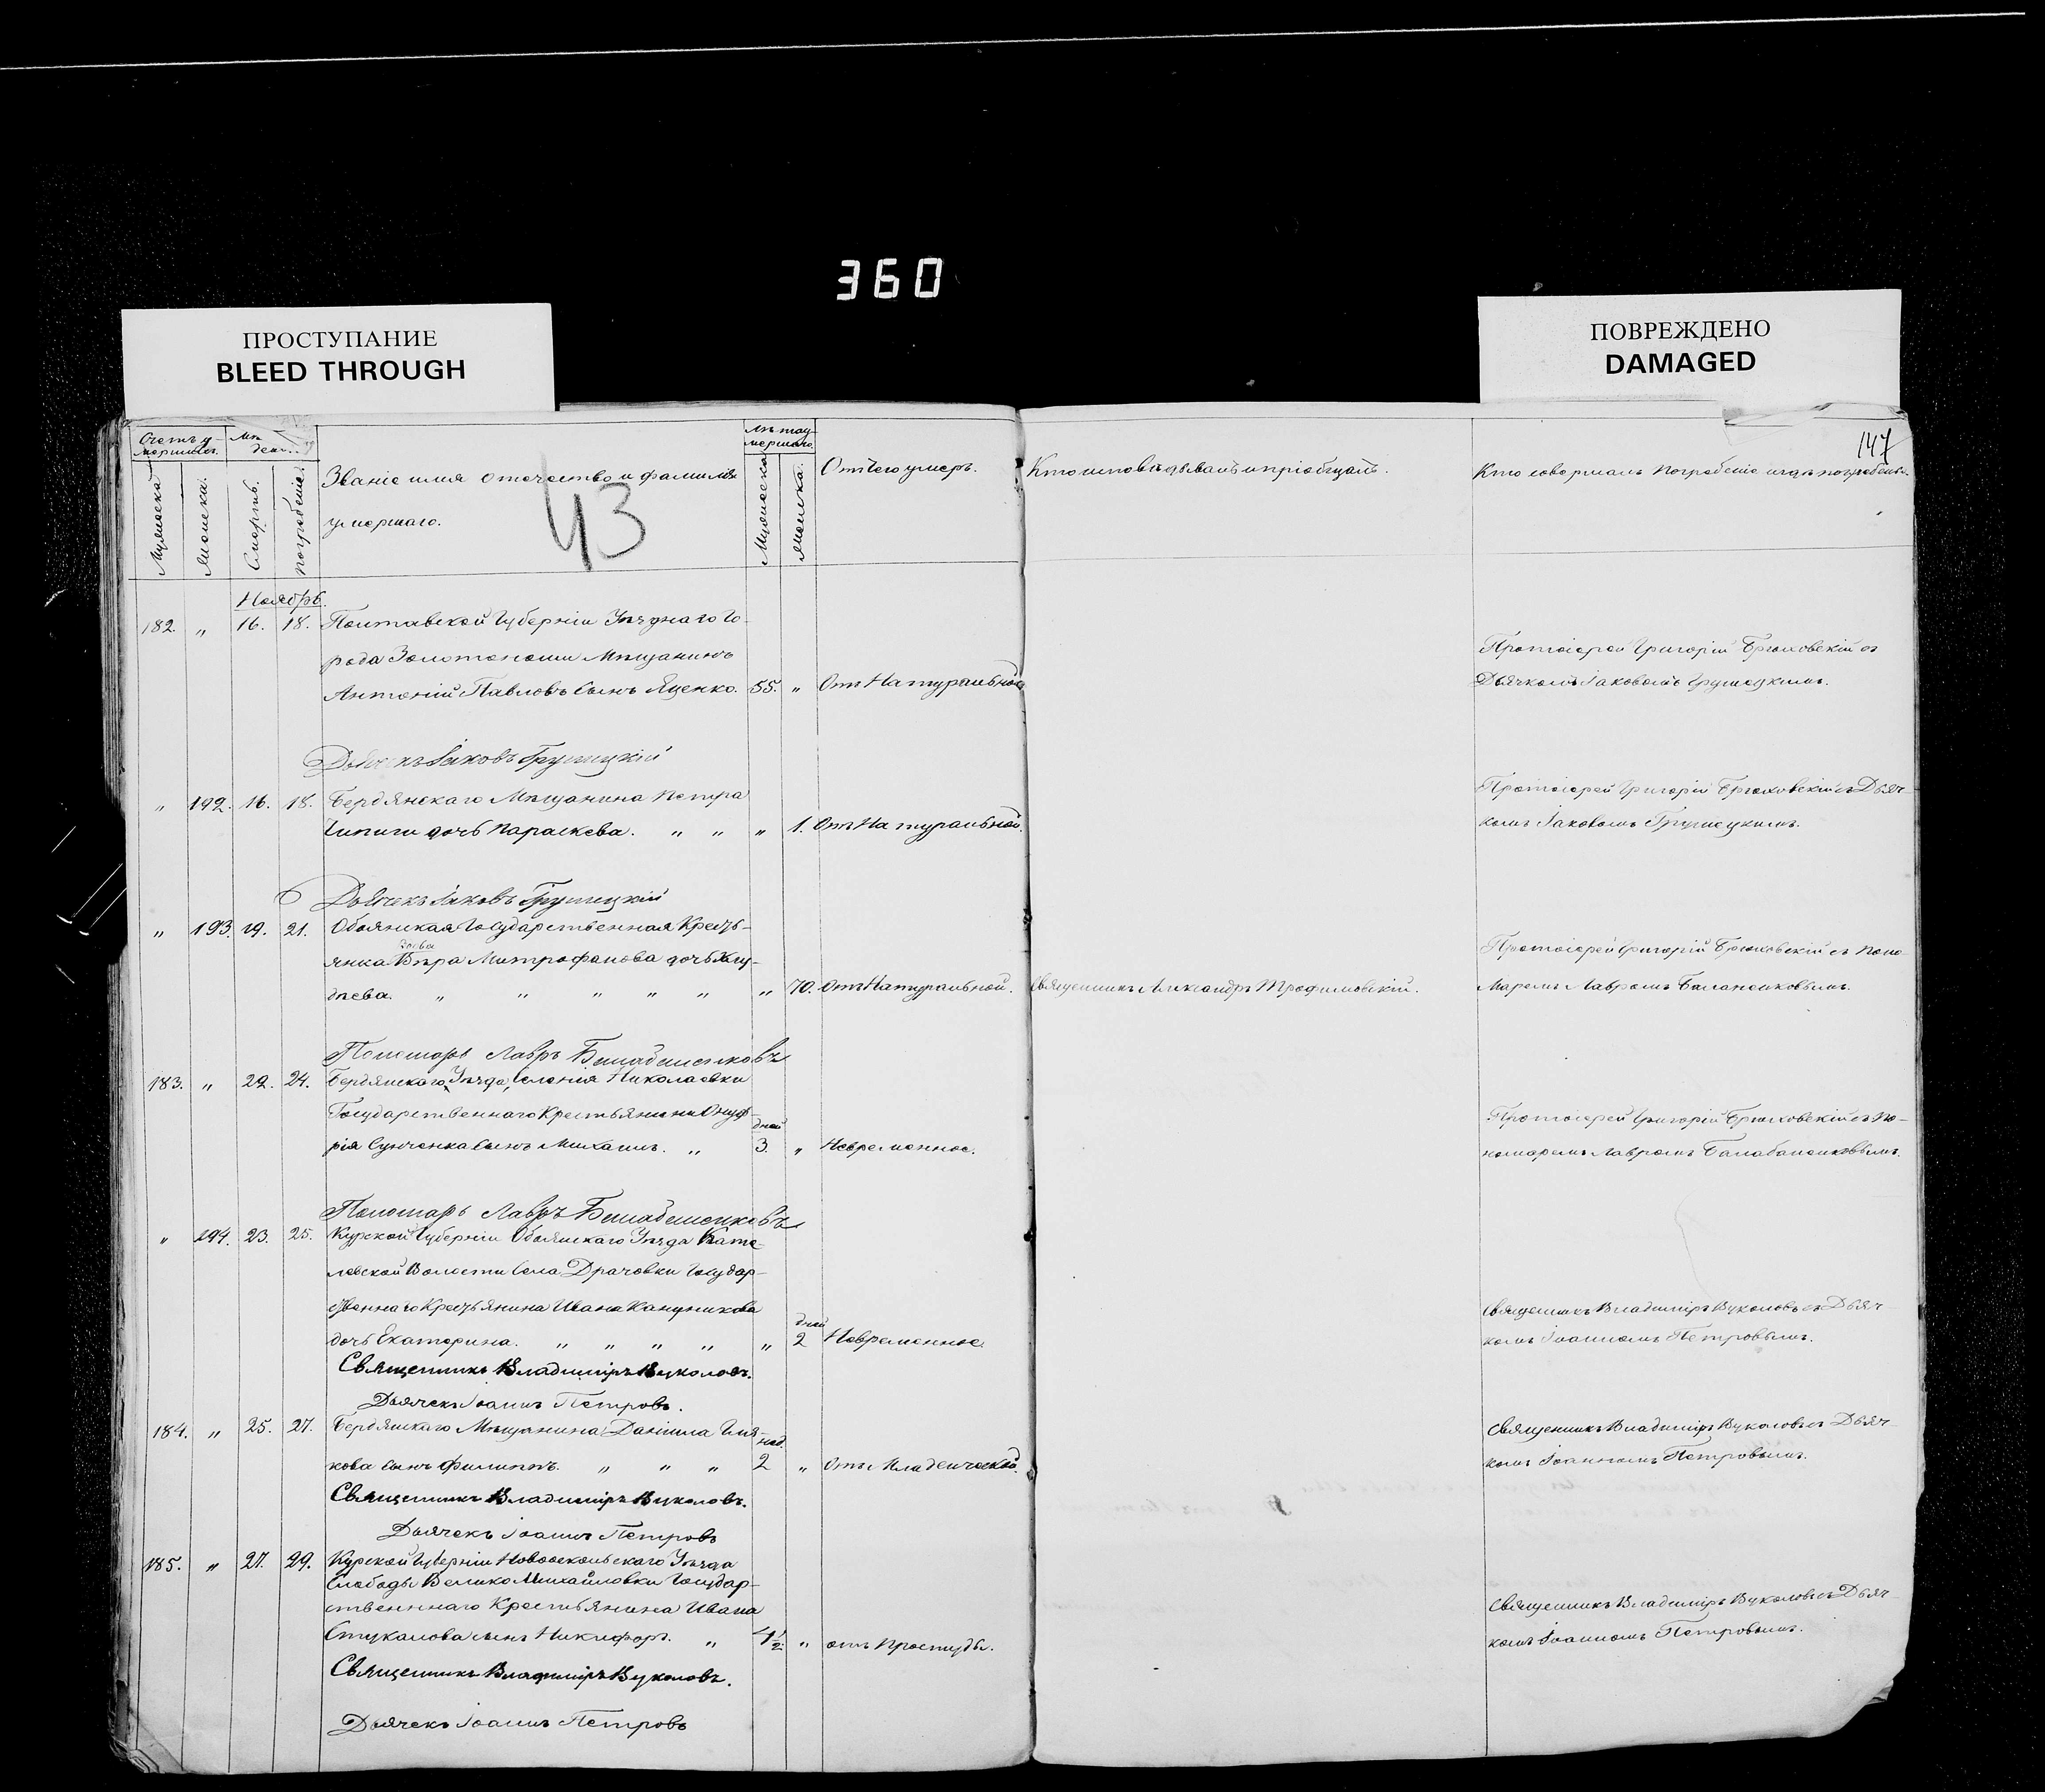 360
ПРОСТУПАНИЕ
BLEED THROUGH
ПОВРЕЖДЕНО
DAMAGED
147
Счетъ умершихъ.
Мужеска
Женска.
Смерти.
погребенія.
Званіе имя отечество и фамилія
умершаго.
43
Мужеска
женска.
Отчего умеръ.
Кто исповѣдывалъ и пріобщалъ.
Кто совершалъ погребеніе и гдѣ погребены.
Ноябрь.
182. „ 16. 18. Полтавской Губерніи Уѣзднаго Го-
рода Золотоноши Мѣщанинъ
Антоній Павловъ сынъ Яценко. 55. „ Отъ Натуральной
Протоіерей Григорій Брюховскій съ
Дьячкомъ Іаковомъ Грушецкимъ.
Дьячекъ Іаковъ Грушецкій
„ 192. 16. 18. Бердянскаго Мѣщанина Петра
Чипиги дочь Параскева. „ „ „ 1. Отъ Натуральной.
Протоіерей Григорій Брюховскій съ Дьяч-
комъ Іаковомъ Грушецкимъ.
Дьячекъ Іаковъ Грушецкій
„ 193. 19. 21. Обоянская Государственная Кресть-
янка Вдова Вѣра Митрофанова дочь
„ „ „ „ „ „ 70. Отъ Натуральной. Священникъ Александръ Трофимовскій.
Протоіерей Григорій Брюховскій съ Поно-
маремъ Лавромъ
Пономарь Лавръ
183. „ 22. 24. Бердянскаго Уѣзда, Селенія Николаевки
Государственнаго Крестьянина Онуф-
рія Сунченка сынъ Михаилъ. „ дней 3. „ Невременное.
Протоіерей Григорій Брюховскій съ По-
номаремъ Лавромъ Балабаненковымъ.
Пономарь Лавръ
„ 194. 23. 25. Курской Губерніи Обоянскаго Уѣзда
Волости Села Драчовки Государ-
ственнаго Крестьянина Ивана Канунникова
дочь Екатерина. „ „ „ „ „ дней 2 Невременное.
Священникъ Владиміръ Вуколовъ съ Дьяч-
комъ Іоанномъ Петровымъ.
Священникъ Владиміръ Вуколовъ.
Дьячекъ Іоаннъ Петровъ.
184. „ 25. 27. Бердянскаго Мѣщанина Даніила
сынъ Филиппъ. „ „ „ нед. 2 „ Отъ Младенческой.
Священникъ Владиміръ Вуколовъ съ Дьяч-
комъ Іоанномъ Петровымъ.
Священникъ Владиміръ Вуколовъ.
Дьячекъ Іоаннъ Петровъ
185. „ 27. 29. Курской Губерніи Новооскольскаго Уѣзда
Слободы Велико Михайловки Государ-
ственннаго Крестьянина Ивана
Стукалова сынъ Никифоръ. „ 4½ „ отъ Простуды.
Священникъ Владиміръ Вуколовъ съ Дьяч-
комъ Іоанномъ Петровымъ.
Священникъ Владиміръ Вуколовъ.
Дьячекъ Іоаннъ Петровъ